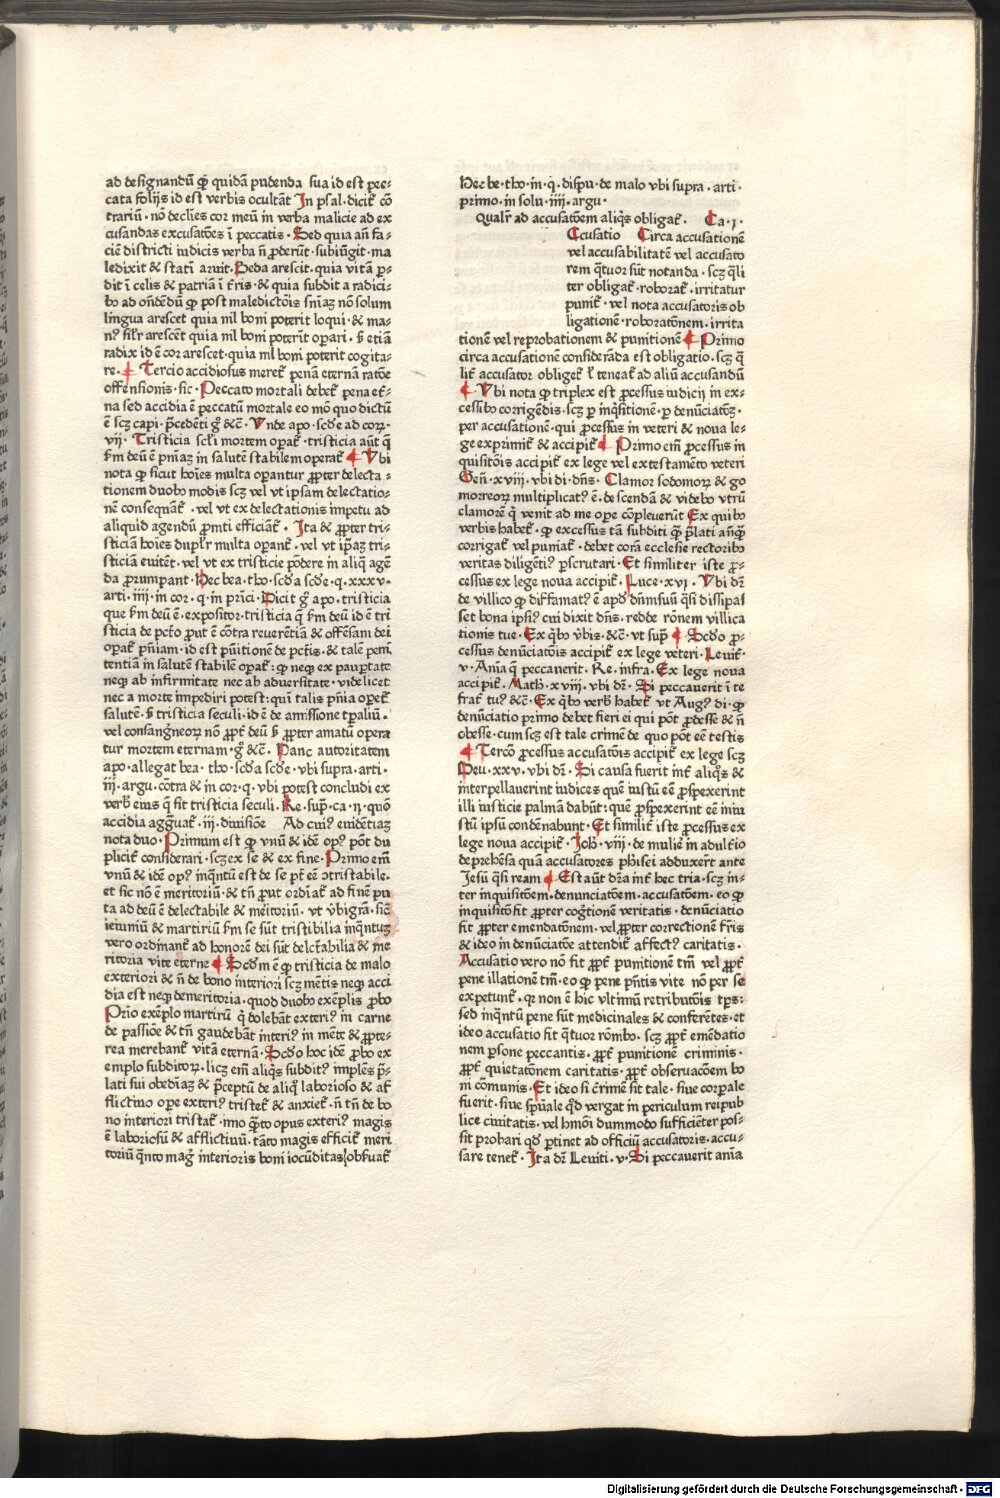 ad designandū qđ quidā pudenda sua id est pec-
cata folijs id est verbis occultāt In psal. dicit᷑ cō
trariū. nō declies cor meū in verba malicie ad ex
cusandas excusatōes ī peccatis. Sed quia añ fa-
ciē districti iudicis verba ñ ꝓderūt. subiūgit. ma
ledixit & statī aruit. Beda arescit. quia vitā ꝑ-
dit ī celis & patriā ī t᷑ris. & quia subdit a radici-
bꝰ ad oñdēdū ꝙ post maledictōis sñiaꝫ nō solum
lingua arescet quia nil boni poterit loqui. & ma-
nꝰ sil᷑r arescēt quia nil boni poterit oꝑari. ꝫ etiā
radix id ē cor arescet. quia nil boni poterit cogita-
re. Tercio accidiosus meret᷑ penā eternā ratōe
offensionis. sic. Peccato mortali debet᷑ pena et᷑-
na sed accidia ē peccatū mortale eo mō quo dictū
ē scꝫ capi. p̄cedēti gͦ &c̄. Vnde apo. scd̄e ad corꝫ.
vij. Tristicia sc᷑li mortem oꝑat᷑. tristicia aūt q̄
km deū ē pñiaꝫ in salutē stabilem operat᷑ Vbi
nota ꝙ sicut hoīes multa oꝑantur ꝓpter delecta-
tionem duobꝰ modis scꝫ vel vt ipsam delectatio-
nē consequāt᷑. vel vt ex delectationis impetu ad
aliquid agendū ꝓmti efficiāt᷑. Ita & ꝓpter tri-
sticiā hoīes dupl᷑r multa oꝑant᷑. vel vt ip̄aꝫ tri-
sticiā euitēt. vel vt ex tristicie pōdere in aliq̄ agē
da ꝓrumpant. Hec bea. tho. scd̄a scd̄e. q. xxxv.
arti. iiij. in cor. q. in prīci. Dicit gͦ apo. tristicia
que km deū ē. expositor. tristicia q̄ km deū id ē tri
sticia de pct̄o ꝓut ē cōtra reuerētiā & offensam dei
oꝑat᷑ pñiam. id est pūitionē de pct̄is. & tale peni
tentiā in salutē stabilē oꝑat᷑. ꝙ neqꝫ ex pauꝑtate
neqꝫ ab infirmitate nec ab aduersitate. videlicet
nec a morte impediri potest. qui talis pñia oꝑet᷑
salutē. ꝫ tristicia seculi. id ē de amissione tꝑaliū.
vel consangͥneorꝫ nō ꝓpt᷑ deū ꝫ ꝓpter amatū opera
tur mortem eternam. gͦ &c̄. Hanc autoritatem
apo. allegat bea. tho. scd̄a scd̄e. vbi supra. arti.
iij. argu. cōtra & in cor. q. vbi potest concludi ex
verbꝭ eius q̄ sit tristicia seculi. Re. supͣ. ca. ij. quō
accidia aggͣuat᷑. iij. diuisiōe Ad cuiꝰ euidētiaꝫ
nota duo. Primum est ꝙ vnū & idē opꝰ pōt du
plicit᷑ considerari. scꝫ ex se & ex fine. Primo em̄
vnū & idē opꝰ. inqͣntū est de se pt᷑ eē ↄtristabile.
et sic nō ē meritoriū. & tñ put ordīat᷑ ad finē pu
ta ad deū ē delectabile & meritoriū. vt v̄bigrā. sic̄
ieiuniū & martiriū km se sūt tristibilia inqͣntuꝫ
vero ordinant᷑ ad honorē dei sūt delc̄tabilia & me
ritoria vite etern̄e Scd̄m ē ꝙ tristicia de malo
exteriori & ñ de bono interiori scꝫ mētis neqꝫ acci
dia est neqꝫ demeritoria. quod duobꝰ exēplis ꝓbo
Prīo exēplo martirū q̄ dolebāt exteriꝰ in carne
de passiōe & tñ gaudebāt interiꝰ in mēte & ꝓpte-
rea merebant᷑ vitā eternā. Scd̄o hoc idē ꝓbo ex
emplo subditorꝫ. licꝫ em̄ aliq̄s subditꝰ implēs p̄-
lati sui obediaꝫ & p̄ceptū de aliqͦ laborioso & af
flictiuo oꝑe exteriꝰ tristet᷑ & anxiet᷑. ñ tñ de bo
no interiori tristat᷑. imo qͣnto opus exteriꝰ magis
ē laboriosū & afflictiuū. tāto magis efficit᷑ meri
toriū qͣnto magꝭ interioris boni iocūditas obẜuat᷑
Hec be. tho. in. q. dispu. de malo vbi supra. arti.
primo. in solu. iiij. argu.
Qual᷑r ad accusatōem aliq̄s obligat᷑. Ca. j.
Ccusatio Circa accusationē
vel accusabilitatē vel accusato
rem qͣtuor sūt notanda. scꝫ qͣli
ter obligat᷑. roborat᷑. irritatur
punit᷑. vel nota accusatoris ob
ligationē. roboratōnem. irrita
tionē vel reprobationem & punitionē Primo
circa accusationē considerāda est obligatio. scꝫ q̄
lit᷑ accusator obliget᷑ l᷑ teneat᷑ ad aliū accusandū
Vbi nota ꝙ triplex est ꝓcessus iudicij in ex-
cessibꝰ corrigēdis. scꝫ ꝑ inqͥsitionē. ꝑ denūciatōꝫ.
per accusationē. qui ꝓcessus in veteri & noua le-
ge exprimit᷑ & accipit᷑ Primo em̄ ꝓcessus in
quisitōis accipit᷑ ex lege vel ex testamēto veteri
Geñ. xviij. vbi di. dñs. Clamor sodomorꝫ & go
morreorꝫ multiplicatꝰ ē. descendā & videbo vtrū
clamorē q̄ venit ad me oꝑe cōpleuerūt Ex quibꝰ
verbis habet᷑. ꝙ excessus tā subditi qͣꝫ p̄lati añqͣꝫ
corrigat᷑ vel puniat᷑. debet corā ecclesie rectoribꝰ
veritas diligētiꝰ ꝑscrutari. Et similiter iste ꝓ-
cessus ex lege noua accipit᷑. Luce. xvi. Vbi dꝫ
de villico ꝙ diffamatꝰ ē apd̄ dñmsuū qͣsi dissipas
set bona ipsiꝰ. cui dixit dñs. redde rōnem villica
tionis tue. Ex qͥbꝰ v̄bis. &c̄. vt supͣ Scd̄o ꝓ-
cessus denūciatōis accipit᷑ ex lege veteri. Leuit᷑.
v. Anīa q̄ peccauerit. Re. infra. Ex lege noua
accipit᷑. Math. xviij. vbi dꝫ. Si peccauerit ī te
frat᷑ tuꝰ. &c̄. Ex qͥbꝰ verbꝭ habet᷑ vt Augꝰ. di. ꝙ
denūciatio primo debet fieri ei qui pōt ꝓdesse & ñ
obesse. cum scꝫ est tale crimē de quo pōt eē testis
Tercō ꝓcessus accusatōis accipit᷑ ex lege scꝫ
Deu. xxv. vbi dꝫ. Si causa fuerit int᷑ aliq̄s &
interpellauerint iudices quē iustū eē ꝓspexerint
illi iusticie palmā dabūt. quē ꝓspexerint eē iniu
stū ipsū condēnabunt. Et similit᷑ iste ꝓcessus ex
lege noua accipit᷑. Joh. viij. de mulie᷑ in adult᷑io
dep̄hēsa quā accusatores ph̄isei adduxer̄t ante
Jesū qͣsi ream Est aūt dr̄a int᷑ hec tria. scꝫ in-
ter inquisitōem. denunciatōem. accusatōem. eo ꝙ
inquisitō fit ꝓpter coḡtionē veritatis. denūciatio
fit ꝓpter emendatōnem. vel ꝓpter correctionē fr̄is
& ideo in denūciatōe attendit᷑ affectꝰ caritatis.
Accusatio vero nō fit ꝓpt᷑ punitionē tm̄ vel ꝓpt᷑
pene illationē tm̄. eo ꝙ pene pñtis vite nō per se
expetunt᷑. qꝛ non ē hic vltimū retributōis tꝑs:
sed inqͣntū pene sūt medicinales & conferētes. et
ideo accusatio fit qͣtuor rōnibꝰ. scꝫ ꝓpt᷑ emēdatio
nem ꝑsone peccantis. ꝓpt᷑ punitionē criminis.
ꝓpt᷑ quietatōnem caritatis. ꝓpt᷑ obseruacōem bo
ni cōmunis. Et ideo si c᷑rimē sit tale. siue corꝑale
fuerit. siue sp̄uale qd̄ vergat in periculum reipub
lice ciuitatis. vel hm̄ōi dummodo sufficiēter pos-
sit probari qd̄ ꝑtinet ad officiū accusatoris. accu-
sare tenet᷑. Ita dꝫ Leuiti. v. Si peccauerit anīa
Digitalisierung gefördert durch die Deutsche Forschungsgemeinschaft - DFG